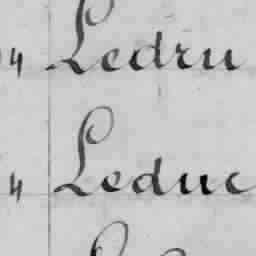 4 Ledru
4 Leduc